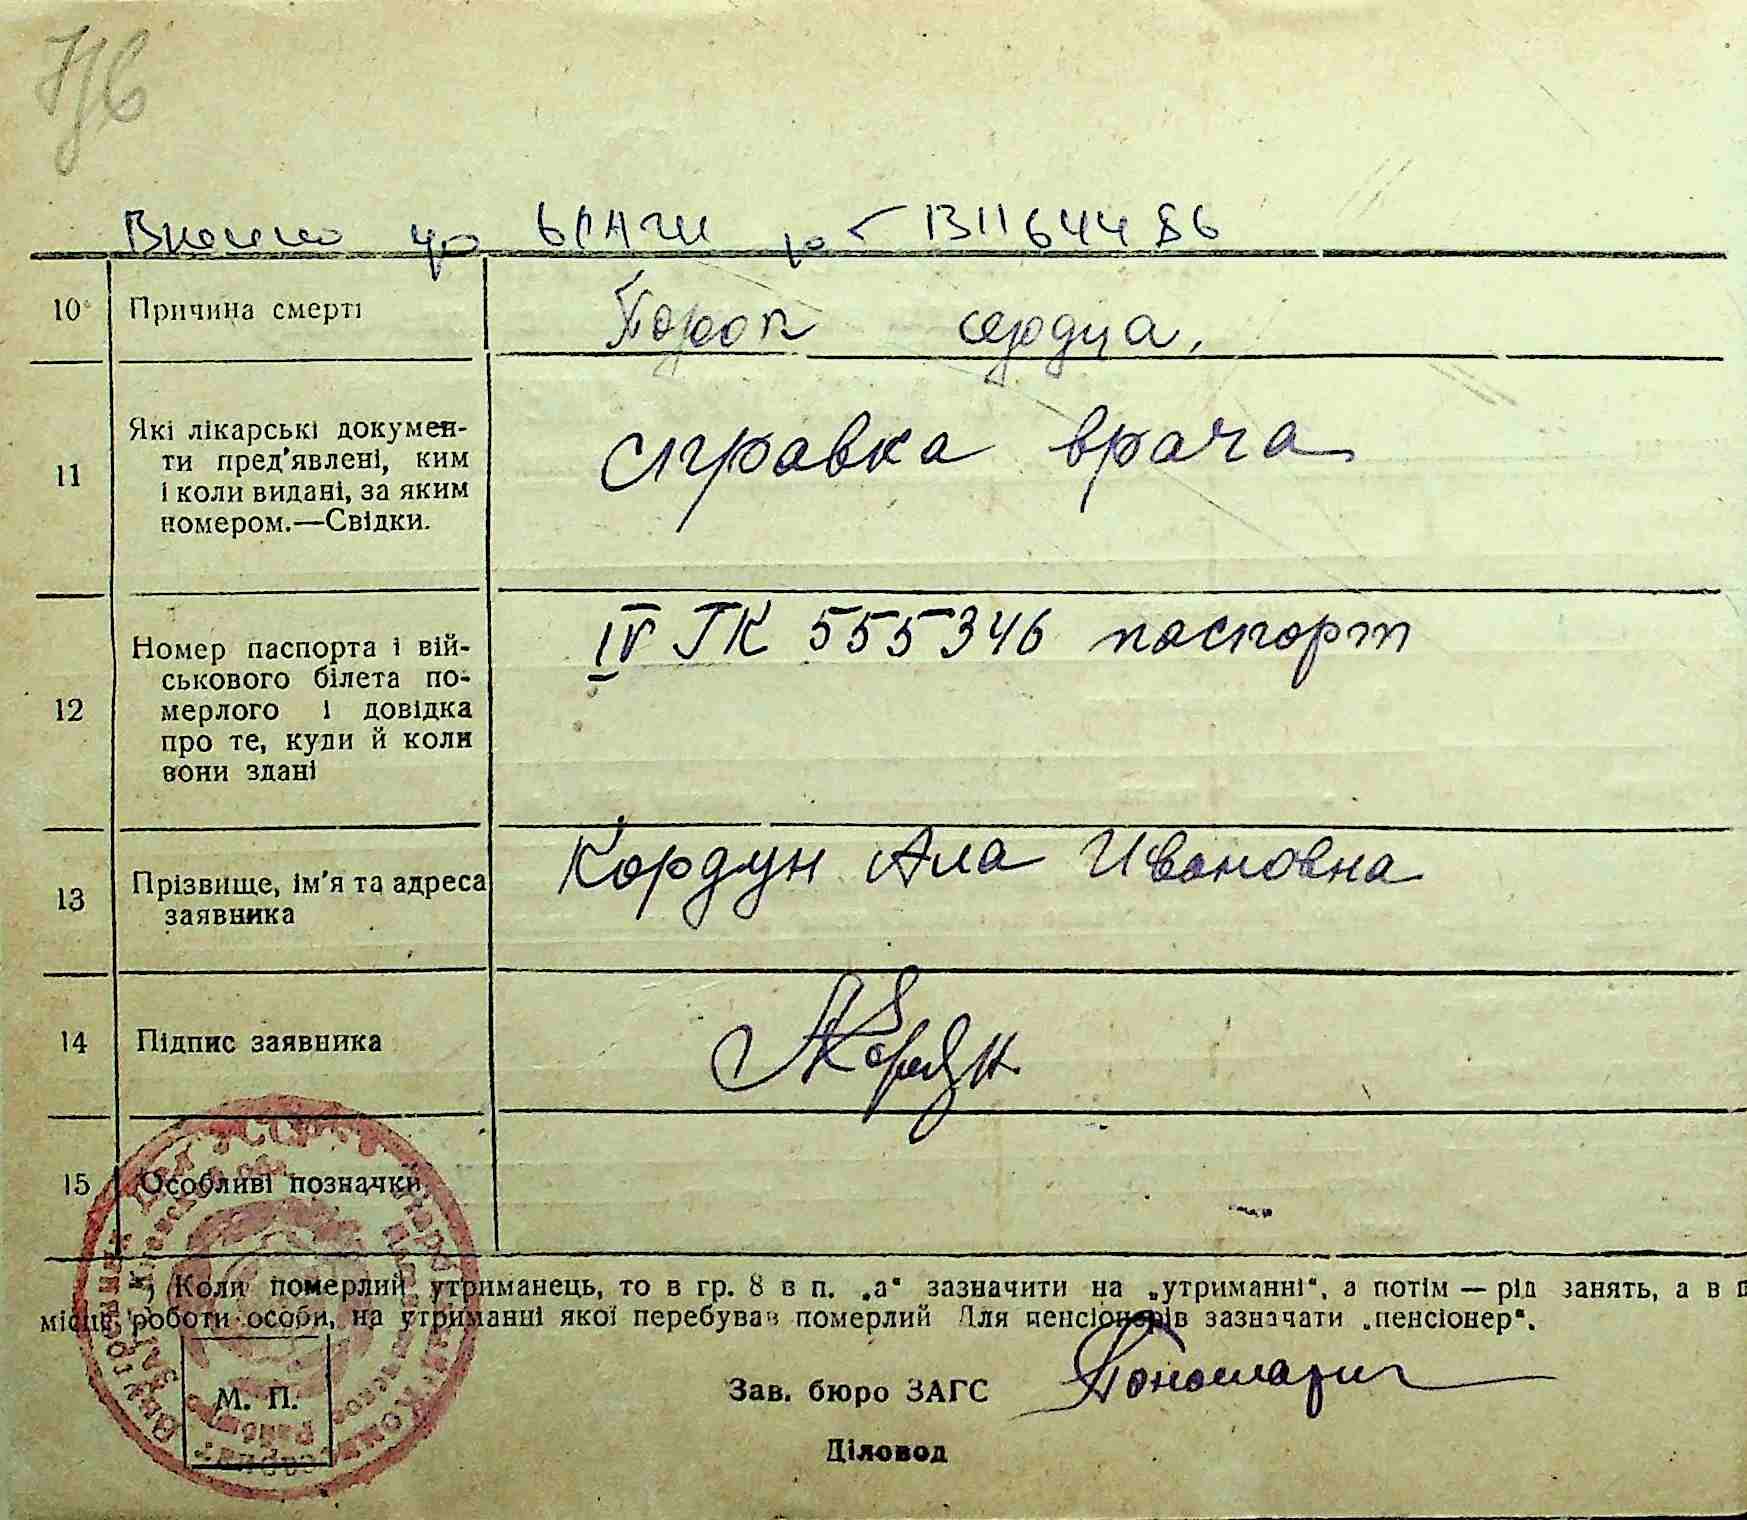 Внесено до ДРАЦС
10 Причина смерті Порок сердца.
11 Які лікарські докумен-
ти пред'явлені, ким
і коли видані, за яким
номером.—Свідки.
справка врача
12 Номер паспорта і вій-
ськового білета по-
мерлого і довідка
про те, куди й коли
вони здані
IV ГК 555346 паспорт
13 Прізвище, ім'я та адреса
заявника
Кордун Ала Ивановна
14 Підпис заявника АКордун
15 Особливі позначки
*) Коли померлий утриманець, то в гр. 8 в п. „а“ зазначити на „утриманні“, а потім — рід занять, а в п
місце роботи особи, на утриманні якої перебував померлий Для пенсіонерів зазначати „пенсіонер“.
М. П.
Зав. бюро ЗАГС
Діловод